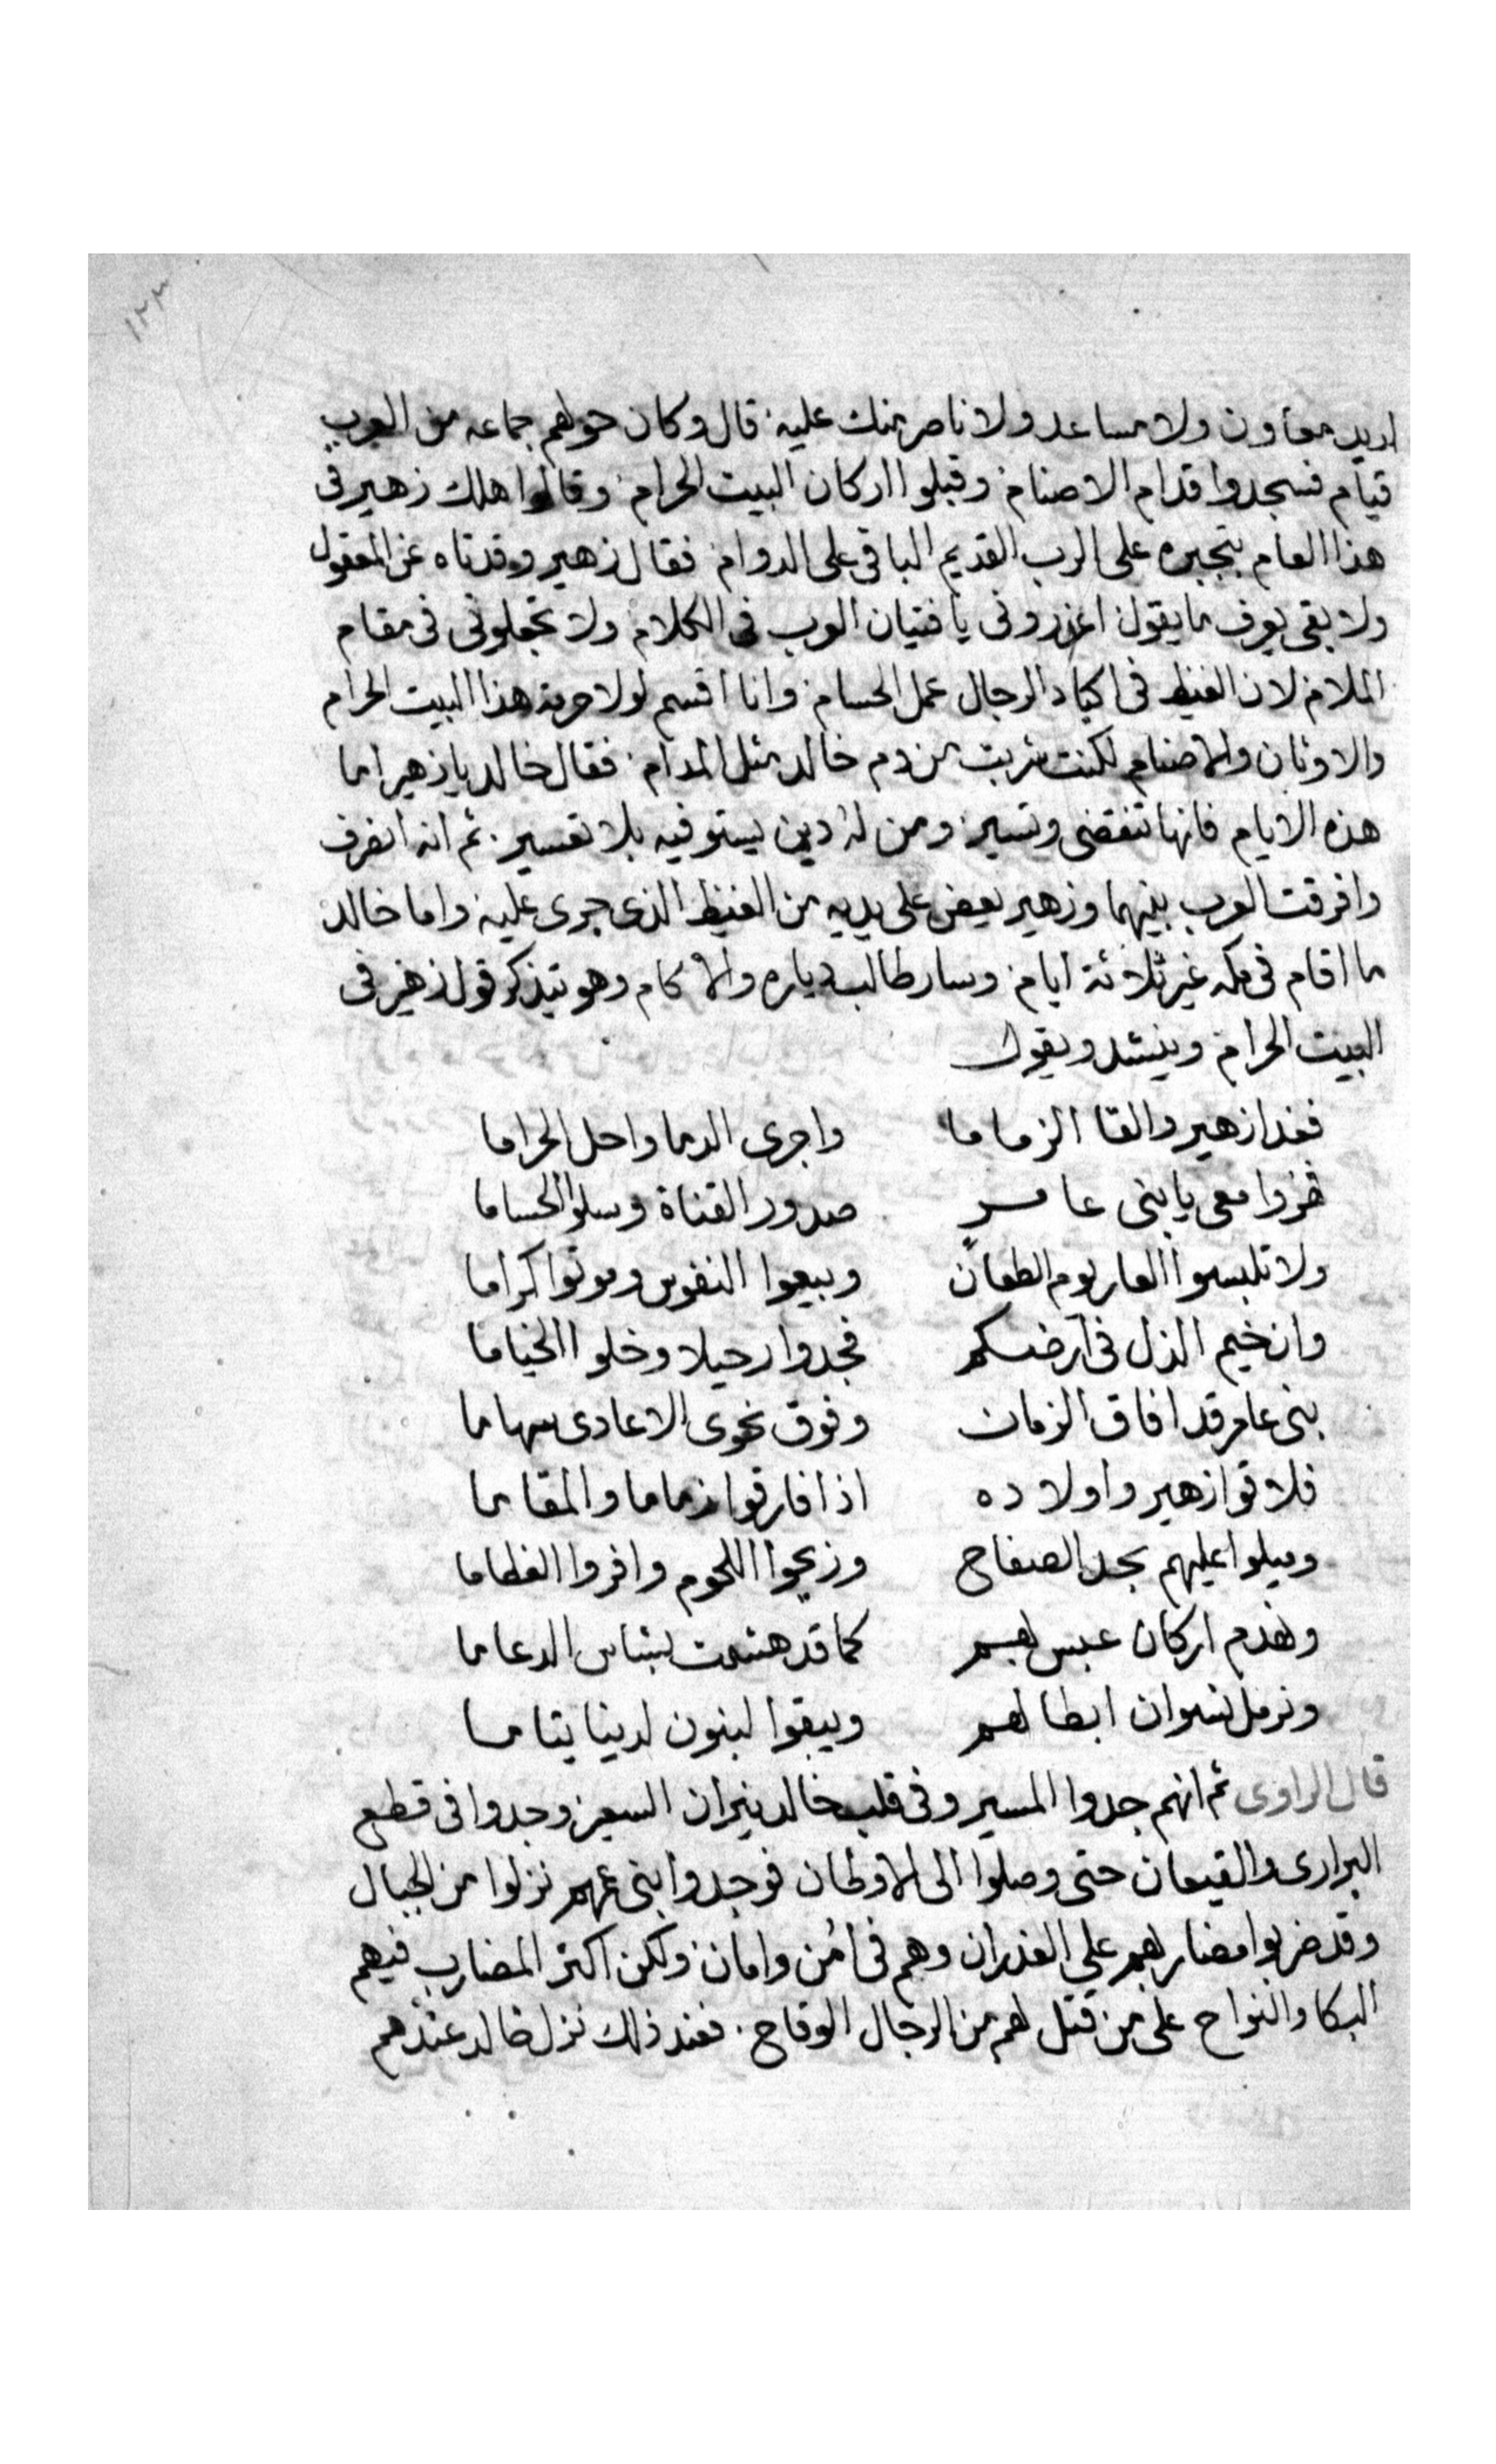 ١٢٣
اريد معاون ولا مساعد ولا ناصر منك عليه قال وكان حولهم جماعه من العرب
قيام فسجدوا قدام الاصنام وقبلوا اركان البيت الحرام وقالوا هلك زهير في
هذا العام بتجبره على الرب القديم الباقي على الدوام فقال زهير وقد تاه عن المعقول
ولا بقي يعرف ما يقول اعزروني يا فتيان العرب في الكلام ولا تجعلوني في مقام
الملام لان الغيظ في اكباد الرجال عمل الحسام وانا اقسم لولا حرمة هذا البيت الحرام
والاوثان والاصنام لكنت شربت من دم خالد مثل المدام فقال خالد يا زهير اما
هذه الايام فانها تنقضي وتسير ومن له دين يستوفيه بلا تعسير ثم انه انصرف
وافرقت العرب بينهما وزهير يعض على يديه من الغيظ الذي جرى عليه واما خالد
ما اقام في مكه غير ثلاثة ايام وسار طالب دياره والاكام وهو يتذكر قول زهير في
البيت الحرام وينشد ويقول
فغدا زهير والقا الزماما واجرى الدما واحل الحراما
فهزوا معي يا بني عامر صدور القناة وسلوا الحساما
ولا تلبسوا العار يوم الطعان وبيعوا النفوس وموتوا كراما
وان خيم الذل في ارضكم فجدوا رحيلا وخلوا الخياما
بني عامر قد افاق الزمان وفوق نحوى الاعادى سهاما
فلاقوا زهير واولاده اذا فارقوا زماما والمقاما
وميلوا عليهم بحد الصفاح وافروا العظاما
ونهدم اركان عبس لهم كما قد هشمت بشاس الدعاما
ونرمل نسوان ابطالهم ويبقوا لبنون لدينا يتاما
قال الراوى ثم انهم جدوا المسير وفي قلب خالد نيران السعير وجدوا في قطع
البرارى والقيعان حتى وصلوا الى الاوطان فوجدوا بني عمهم نزلوا من الجبال
وقد ضربوا مضاربهم على الغدران وهم في امن وامان ولكن اكثر المضارب فيهم
البكا والنواح على من قتل لهم من الرجال الوقاح فعند ذلك نزل خالد عندهم